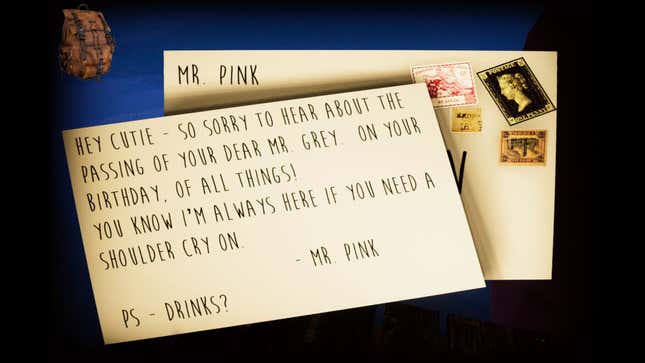 MR. PINK
HEY CUTIE - SO SORRY TO HEAR ABOUT THE
PASSING OF YOUR DEAR MR. GREY. ON YOUR
BIRTHDAY, OF ALL THINGS!
YOU KNOW I'M ALWAYS HERE IF YOU NEED A
SHOULDER CRY ON.
- MR. PINK
PS - DRINKS?
POSTAGE